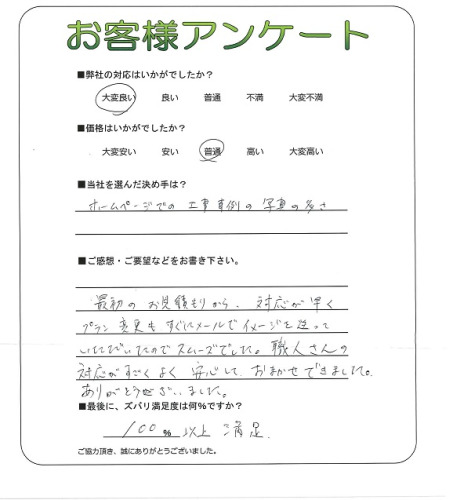 お客様アンケート
■弊社の対応はいかがでしたか？
大変良い 良い 普通 不満 大変不満
■価格はいかがでしたか？
大変安い 安い 普通 高い 大変高い
■当社を選んだ決め手は？
ホームページでの工事事例の写真の多さ
■ご感想・ご要望などをお書き下さい。
最初のお見積もりから、対応が早く
プラン変更もすぐにメールでイメージを送って
いただいたのでスムーズでした。職人さんの
対応がすごくよく安心して、おまかせできました。
ありがとうございました。
■最後に、ズバリ満足度は何％ですか？
100 ％ 以上 満足.
ご協力頂き、誠にありがとうございました。